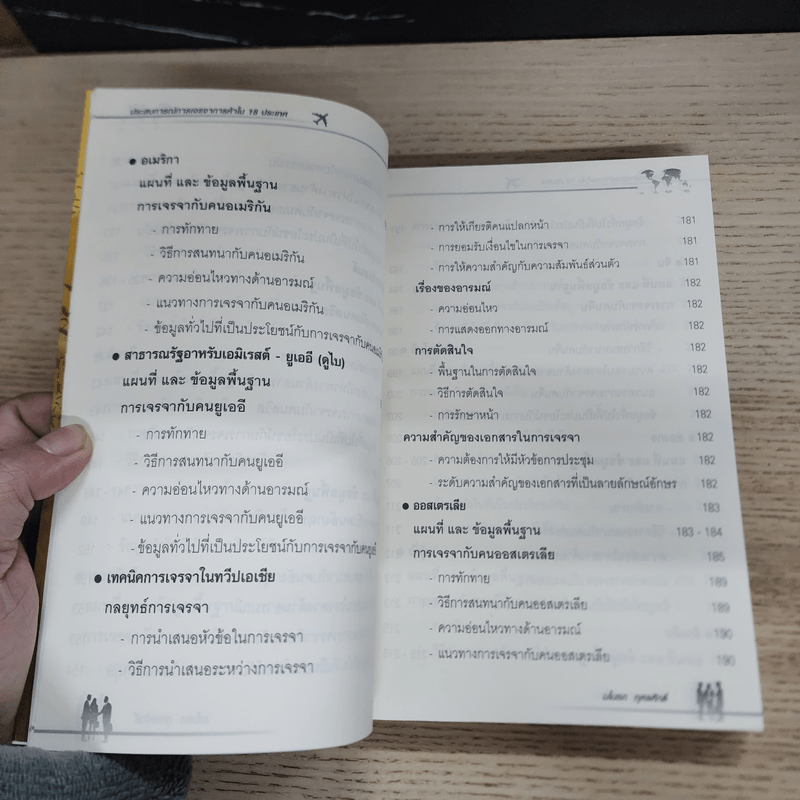 ประสบการณ์การเจรจาการค้าใน 18 ประเทศ
● อเมริกา
แผนที่ และ ข้อมูลพื้นฐาน
การเจรจากับคนอเมริกัน
- การทักทาย
- วิธีการสนทนากับคนอเมริกัน
- ความอ่อนไหวทางด้านอารมณ์
- แนวทางการเจรจากับคนอเมริกัน
- ข้อมูลทั่วไปที่เป็นประโยชน์กับการเจรจากับคนอเมริกัน
● สาธารณรัฐอาหรับเอมิเรสต์ - ยูเออี (ดูไบ)
แผนที่ และ ข้อมูลพื้นฐาน
การเจรจากับคนยูเออี
- การทักทาย
- วิธีการสนทนากับคนยูเออี
- ความอ่อนไหวทางด้านอารมณ์
- แนวทางการเจรจากับคนยูเออี
- ข้อมูลทั่วไปที่เป็นประโยชน์กับการเจรจากับคนยูเออี
● เทคนิคการเจรจาในทวีปเอเชีย
กลยุทธ์การเจรจา
- การนำเสนอหัวข้อในการเจรจา
- วิธีการนำเสนอระหว่างการเจรจา
- การให้เกียรติคนแปลกหน้า 181
- การยอมรับเงื่อนไขในการเจรจา 181
- การให้ความสำคัญกับความสัมพันธ์ส่วนตัว 181
เรื่องของอารมณ์ 182
- ความอ่อนไหว 182
- การแสดงออกทางอารมณ์ 182
การตัดสินใจ 182
- พื้นฐานในการตัดสินใจ 182
- วิธีการตัดสินใจ 182
- การรักษาหน้า 182
ความสำคัญของเอกสารในการเจรจา 182
- ความต้องการให้มีหัวข้อการประชุม 182
- ระดับความสำคัญของเอกสารที่เป็นลายลักษณ์อักษร 182
● ออสเตรเลีย 183
แผนที่ และ ข้อมูลพื้นฐาน 183 - 184
การเจรจากับคนออสเตรเลีย 185
- การทักทาย 189
- วิธีการสนทนากับคนออสเตรเลีย 189
- ความอ่อนไหวทางด้านอารมณ์ 190
- แนวทางการเจรจากับคนออสเตรเลีย 190